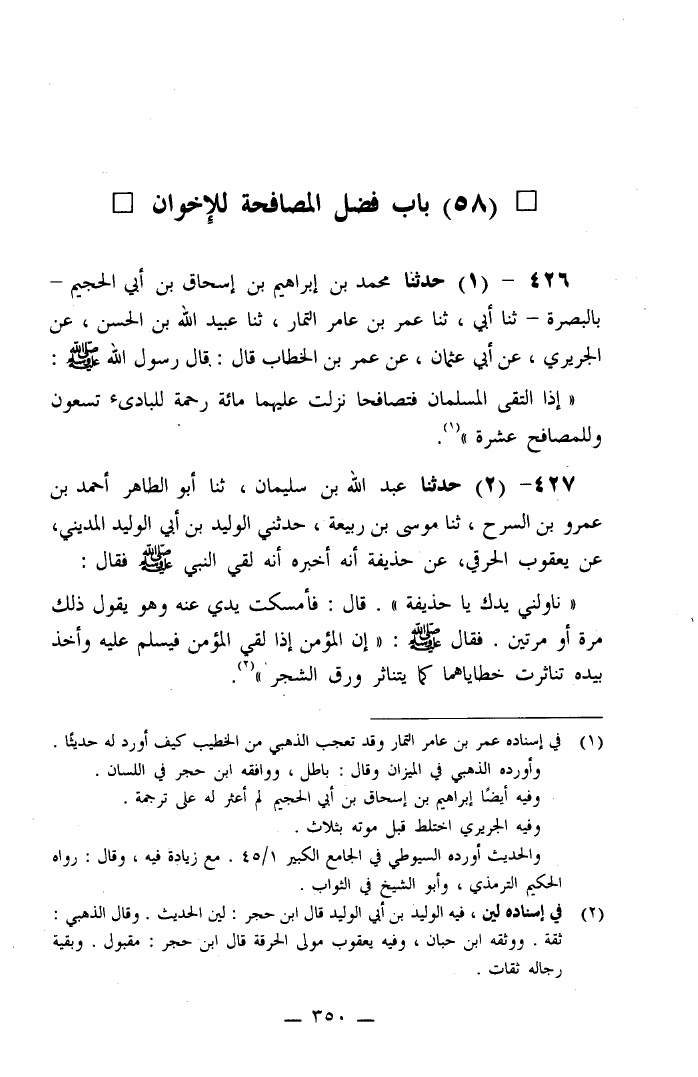 □ (٥٨) باب فضل المصافحة للإخوان □
٤٢٦ - (١) حدثنا محمد بن إبراهيم بن إسحاق بن أبي الحجيم –
بالبصرة – ثنا أبي ، ثنا عمر بن عامر التمار ، ثنا عبيد الله بن الحسن ، عن
الجريري ، عن أبي عثمان ، عن عمر بن الخطاب قال : قال رسول الله ﷺ :
« إذا التقى المسلمان فتصافحا نزلت عليهما مائة رحمة للبادىء تسعون
وللمصافح عشرة »(١).
٤٢٧- (٢) حدثنا عبد الله بن سليمان ، ثنا أبو الطاهر أحمد بن
عمرو بن السرح ، ثنا موسى بن ربيعة ، حدثني الوليد بن أبي الوليد المديني،
عن يعقوب الحرقي، عن حذيفة أنه أخبره أنه لقي النبي ﷺ فقال :
« ناولني يدك يا حذيفة » . قال : فأمسكت يدي عنه وهو يقول ذلك
مرة أو مرتين . فقال ﷺ : « إن المؤمن إذا لقي المؤمن فيسلم عليه وأخذ
بيده تناثرت خطاياهما كما يتناثر ورق الشجر »(٢).
(١) في إسناده عمر بن عامر التمار وقد تعجب الذهبي من الخطيب كيف أورد له حديثًا .
وأورده الذهبي في الميزان وقال : باطل ، ووافقه ابن حجر في اللسان .
وفيه أيضًا إبراهيم بن إسحاق بن أبي الحجيم لم أعثر له على ترجمة .
وفيه الجريري اختلط قبل موته بثلاث .
والحديث أورده السيوطي في الجامع الكبير ٤٥/١ . مع زيادة فيه ، وقال : رواه
الحكيم الترمذي ، وأبو الشيخ في الثواب .
(٢) في إسناده لين ، فيه الوليد بن أبي الوليد قال ابن حجر : لين الحديث . وقال الذهبي :
ثقة . ووثقه ابن حبان ، وفيه يعقوب مولى الحرقة قال ابن حجر : مقبول . وبقية
رجاله ثقات .
— ٣٥٠ —